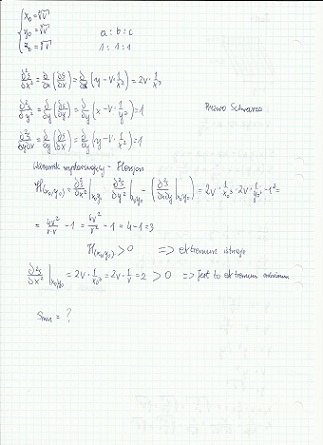 x₀ = ∛V
y₀ = ∛V
z₀ = ∛V
a : b : c
1 : 1 : 1
∂²S/∂x² = ∂/∂x (∂S/∂x) = ∂/∂x (y − V·1/x²) = 2V·1/x³
∂²S/∂y² = ∂/∂y (∂S/∂y) = ∂/∂y (x − V·1/y²) = 1
Prawo Schwarza
∂²S/∂y∂x = ∂/∂y (∂S/∂x) = ∂/∂y (y − V·1/x²) = 1
Warunek wystarczający - Hesjan
H(x₀,y₀) = ∂²S/∂x² |x₀y₀ · ∂²S/∂y² |x₀y₀ − (∂²S/∂x∂y |x₀y₀)² = 2V·1/x₀³ · 2V·1/y₀³ − 1² =
= 4V²/V·V − 1 = 4V²/V² − 1 = 4 − 1 = 3
H(x₀y₀) > 0 => ekstremum istnieje
∂²S/∂x² |x₀y₀ = 2V·1/x₀³ = 2V·1/V = 2 > 0 => jest to ekstremum minimum
Smin = ?